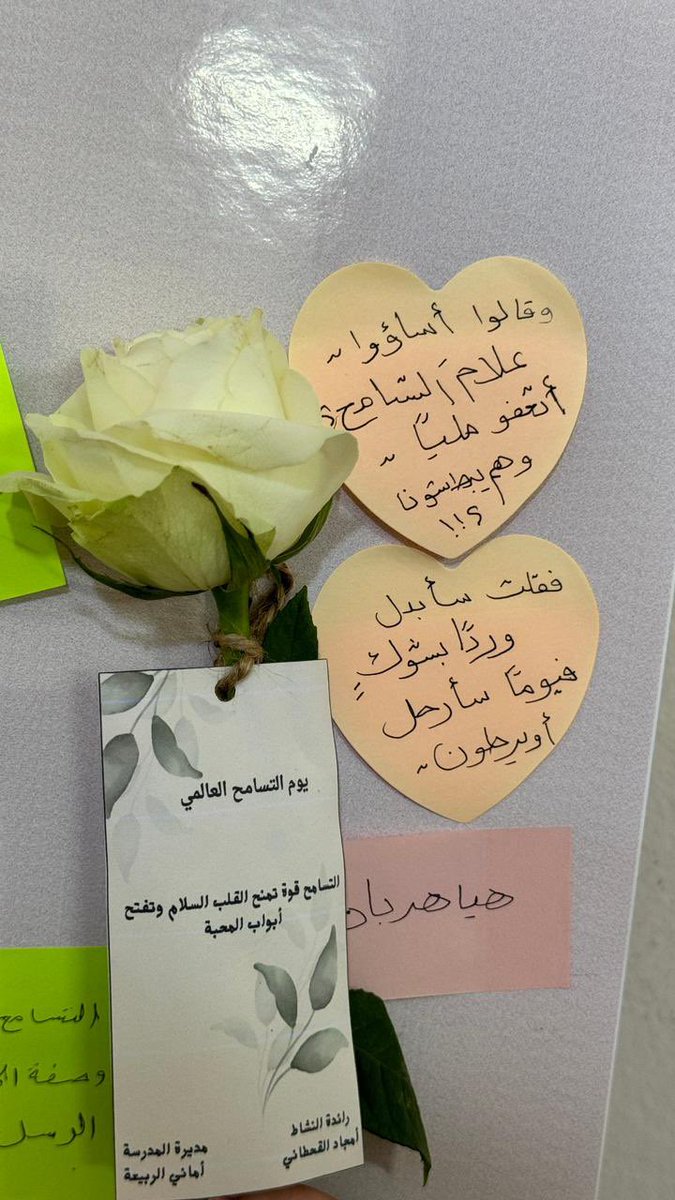 وقالوا أساؤوا
علام التسامح؟
أتعفو ملياً
وهم يبطشونا
؟!!
فقلت سأبدل
وردًا بشوكٍ
فيومًا سأرحل
أو يرحلون
يوم التسامح العالمي
التسامح قوة تمنح القلب السلام وتفتح
أبواب المحبة
رائدة النشاط
أمجاد القحطاني
مديرة المدرسة
أماني الربيعة
التسامح
وصفة
الرسل